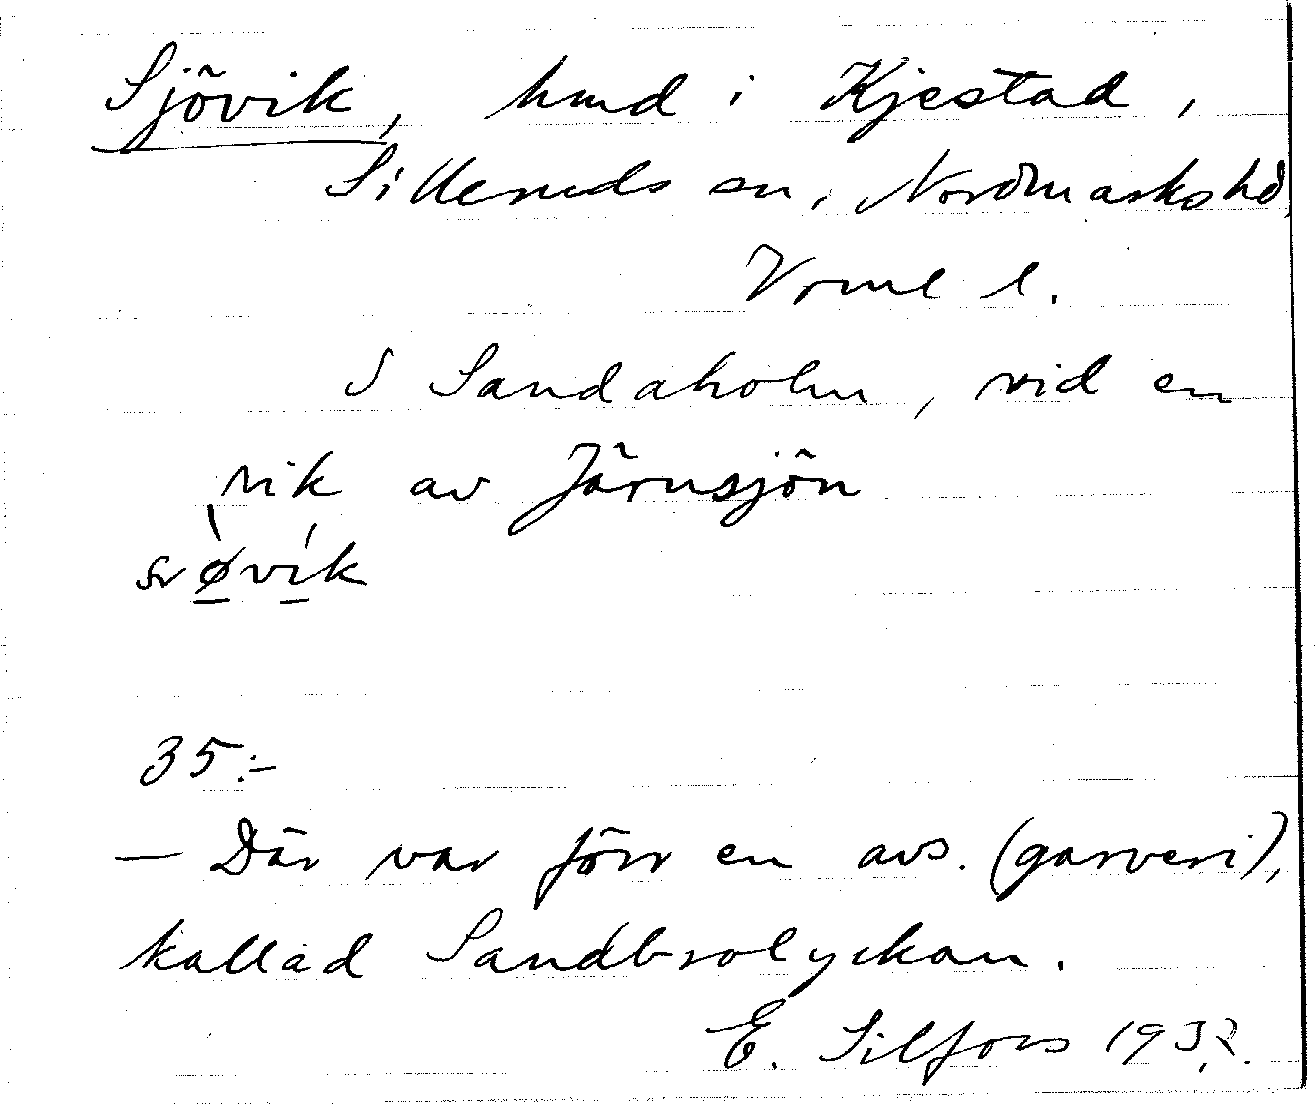 Sjövik, hmd i Kjestad,
Silleruds sn, Nordmarks hd
Vrml l.
S Sandaholm, vid en
vik av Järnsjön
søvik
35:-
— Där var förr en avs. (garveri),
kallad Sandbrolyckan.
E. Silfors 1932.